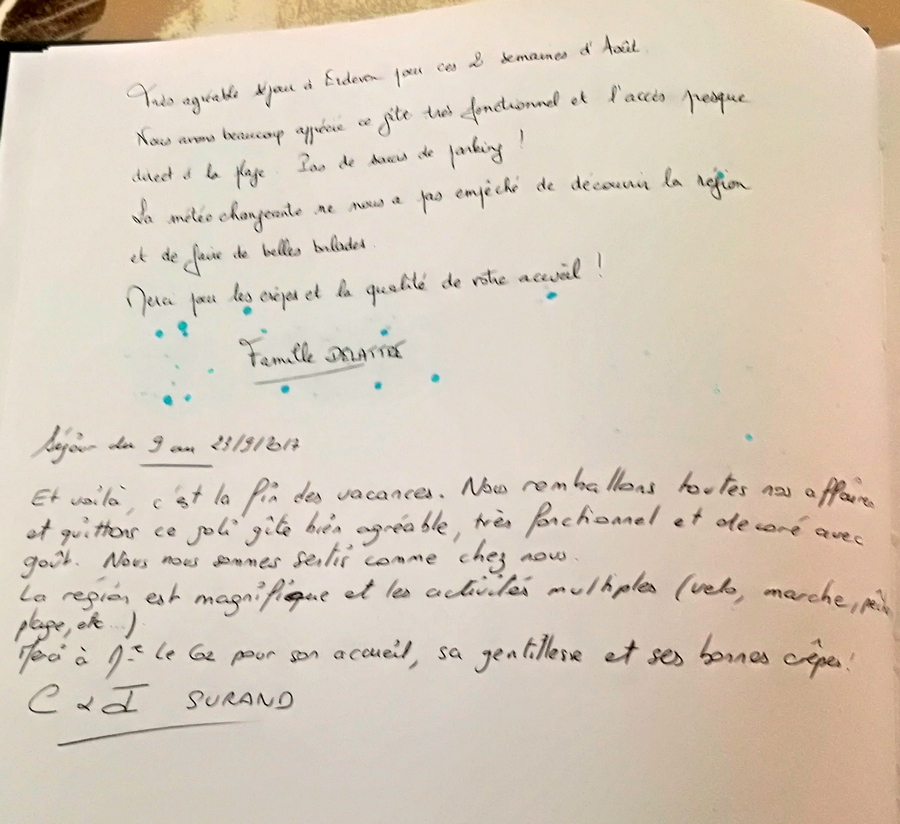 Très agréable séjour à Erdeven pour ces 2 semaines d'Août.
Nous avons beaucoup apprécié ce gîte très fonctionnel et l'accès presque
direct à la plage. Pas de soucis de parking !
La météo changeante ne nous a pas empêché de découvrir la région
et de faire de belles balades.
Merci pour les crêpes et la qualité de votre accueil !
Famille DELATTRE
Séjour du 9 au 23/9/2017
Et voilà, c'est la fin des vacances. Nous remballons toutes nos affaires
et quittons ce joli gîte bien agréable, très fonctionnel et decoré avec
goût. Nous nous sommes sentis comme chez nous.
La région est magnifique et les activités multiples (velo, marche,
plage, etc...)
Merci à Mme Le Gz pour son accueil, sa gentillesse et ses bonnes crêpes!
C & I SURAND